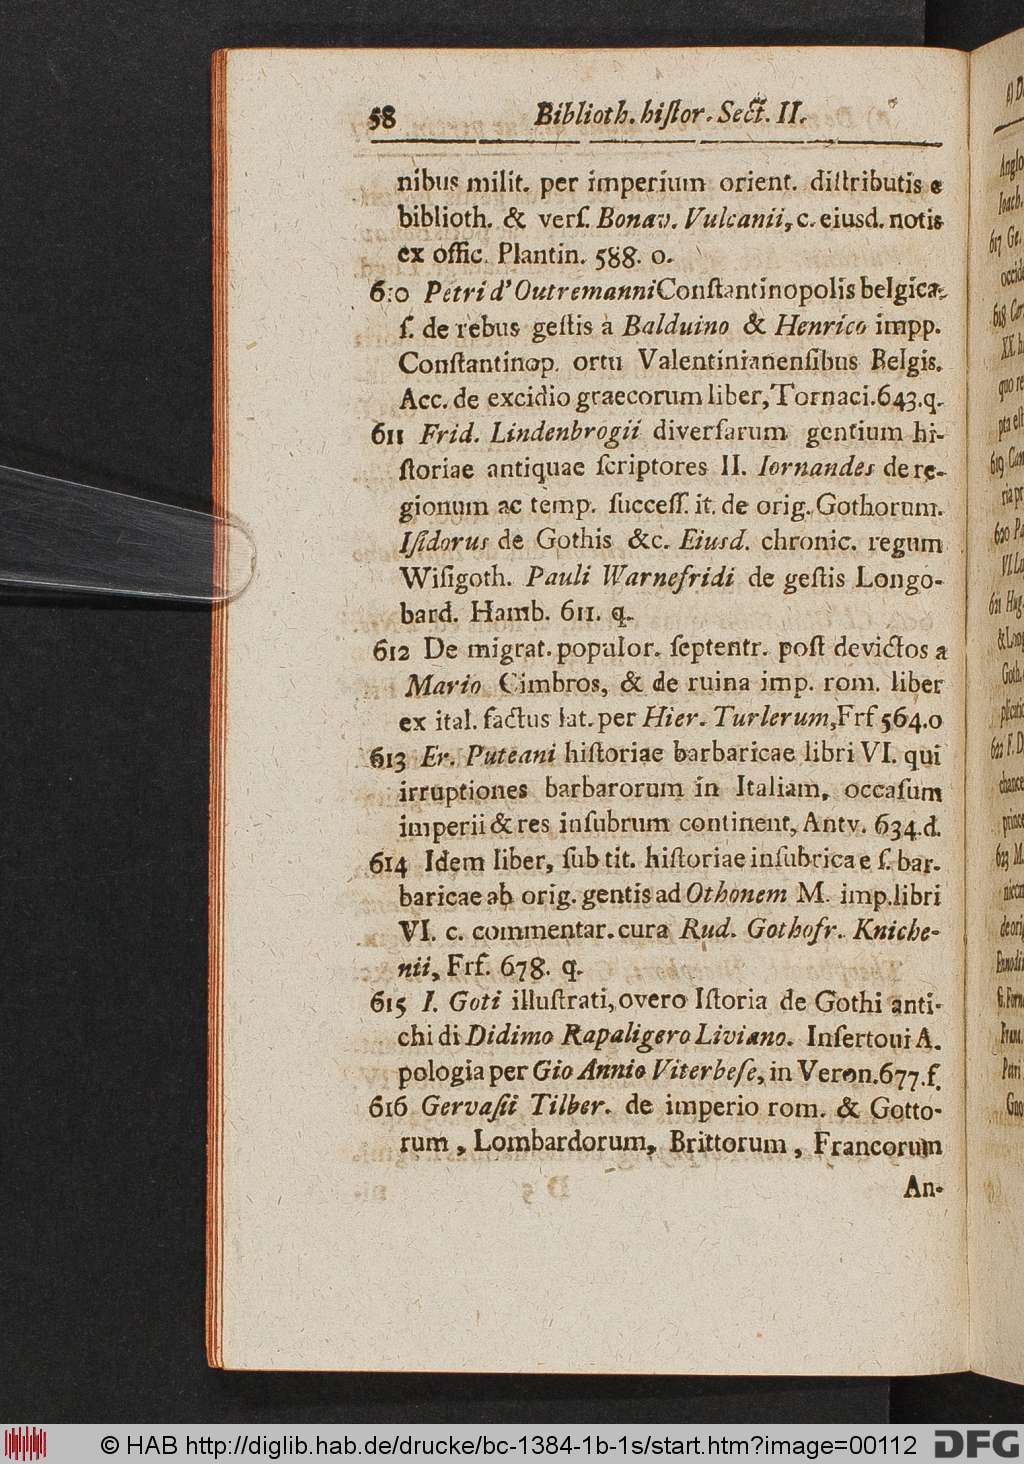 58 Biblioth. hiſtor. Sect. II.
nibus milit. per imperium orient. diſtributis e
biblioth. & verſ. Bonav. Vulcanii, c. eiusd. notis
ex offic. Plantin. 588. o.
610 Petri d'Outremanni Conſtantinopolis belgica,
ſ. de rebus geſtis à Balduino & Henrico impp.
Conſtantinop. ortu Valentinianenſibus Belgis.
Acc. de excidio graecorum liber, Tornaci. 643. q.
611 Frid. Lindenbrogii diverſarum gentium hi-
ſtoriae antiquae ſcriptores II. Iornandes de re-
gionum ac temp. ſucceſſ. it. de orig. Gothorum.
Iſidorus de Gothis &c. Eiusd. chronic. regum
Wiſigoth. Pauli Warnefridi de geſtis Longo-
bard. Hamb. 611. q.
612 De migrat. populor. ſeptentr. poſt devictos a
Mario Cimbros, & de ruina imp. rom. liber
ex ital. factus lat. per Hier. Turlerum, Frf 564. o
613 Er. Puteani hiſtoriae barbaricae libri VI. qui
irruptiones barbarorum in Italiam, occaſum
imperii & res inſubrum continent, Antv. 634. d.
614 Idem liber, ſub tit. hiſtoriae inſubricae ſ. bar-
baricae ab orig. gentis ad Othonem M. imp. libri
VI. c. commentar. cura Rud. Gothofr. Kniche-
nii, Frf. 678. q.
615 I. Goti illuſtrati, overo Iſtoria de Gothi anti-
chi di Didimo Rapaligero Liviano. Inſertovi A.
pologia per Gio Annio Viterbeſe, in Veron. 677. f.
616 Gervaſii Tilber. de imperio rom. & Gotto-
rum, Lombardorum, Brittorum, Francorum
An-
© HAB http://diglib.hab.de/drucke/bc-1384-1b-1s/start.htm?image=00112
DFG